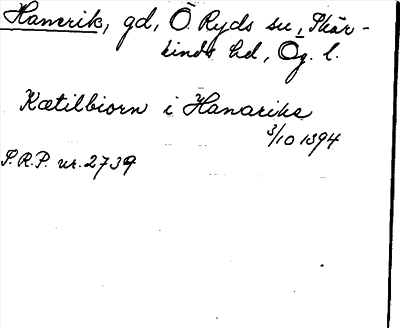 Hamerik, gd, Ö. Ryds sn, Skär-
kinds hd, Ög. l.
Kætilbiorn i Hanariks
3/10 1394
S.R.P. nr. 2739